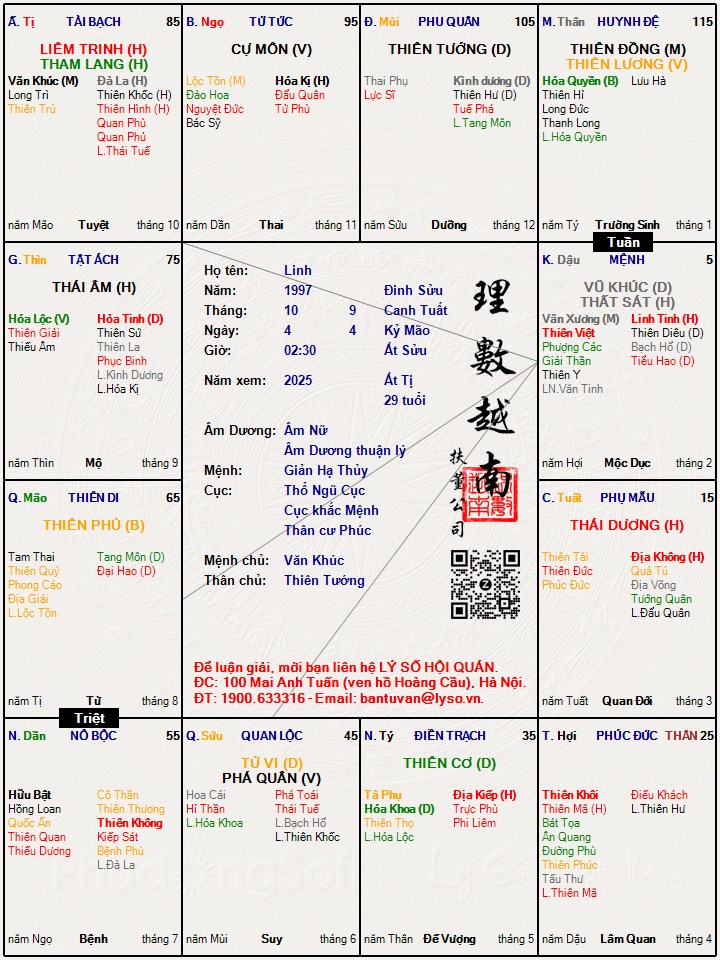 Ất. Tị TÀI BẠCH 85
LIÊM TRINH (H)
THAM LANG (H)
Văn Khúc (M) Đà La (H)
Long Trì Thiên Khốc (H)
Thiên Trù Thiên Hình (H)
Quan Phù
Quan Phủ
L.Thái Tuế
năm Mão Tuyệt tháng 10
B. Ngọ TỬ TỨC 95
CỰ MÔN (V)
Lộc Tồn (M) Hóa Kị (H)
Đào Hoa Đẩu Quân
Nguyệt Đức Tử Phù
Bác Sỹ
năm Dần Thai tháng 11
Đ. Mùi PHU QUÂN 105
THIÊN TƯỚNG (D)
Thai Phụ Kình dương (D)
Lực Sĩ Thiên Hư (D)
Tuế Phá
L.Tang Môn
năm Sửu Dưỡng tháng 12
M. Thân HUYNH ĐỆ 115
THIÊN ĐỒNG (M)
THIÊN LƯƠNG (V)
Hóa Quyền (B) Lưu Hà
Thiên Hỉ
Long Đức
Thanh Long
L.Hóa Quyền
năm Tý Trường Sinh tháng 1
Tuần
G. Thìn TẬT ÁCH 75
THÁI ÂM (H)
Hóa Lộc (V) Hỏa Tinh (D)
Thiên Giải Thiên Sứ
Thiếu Âm Thiên La
Phục Binh
L.Kình Dương
L.Hóa Kị
năm Thìn Mộ tháng 9
Họ tên: Linh
Năm: 1997 Đinh Sửu
Tháng: 10 9 Canh Tuất
Ngày: 4 4 Kỷ Mão
Giờ: 02:30 Ất Sửu
Năm xem: 2025 Ất Tị
29 tuổi
Âm Dương: Âm Nữ
Âm Dương thuận lý
Mệnh: Giản Hạ Thủy
Cục: Thổ Ngũ Cục
Cục khắc Mệnh
Thân cư Phúc
Mệnh chủ: Văn Khúc
Thân chủ: Thiên Tướng
理數越南
扶董公司
Để luận giải, mời bạn liên hệ LÝ SỐ HỘI QUÁN.
ĐC: 100 Mai Anh Tuấn (ven hồ Hoàng Cầu), Hà Nội.
ĐT: 1900.633316 - Email: bantuvan@lyso.vn.
K. Dậu MỆNH 5
VŨ KHÚC (D)
THẤT SÁT (H)
Văn Xương (M) Linh Tinh (H)
Thiên Việt Thiên Diêu (D)
Phượng Các Bạch Hổ (D)
Giải Thần Tiểu Hao (D)
Thiên Y
LN.Văn Tinh
năm Hợi Mộc Dục tháng 2
Q. Mão THIÊN DI 65
THIÊN PHỦ (B)
Tam Thai Tang Môn (D)
Thiên Quý Đại Hao (D)
Phong Cáo
Địa Giải
L.Lộc Tồn
năm Tị Tử tháng 8
C. Tuất PHỤ MẪU 15
THÁI DƯƠNG (H)
Thiên Tài Địa Không (H)
Thiên Đức Quả Tú
Phúc Đức Địa Võng
Tướng Quân
L.Đẩu Quân
năm Tuất Quan Đới tháng 3
Triệt
N. Dần NÔ BỘC 55
Hữu Bật Cô Thần
Hồng Loan Thiên Thương
Quốc Ấn Thiên Không
Thiên Quan Kiếp Sát
Thiếu Dương Bệnh Phù
L.Đà La
năm Ngọ Bệnh tháng 7
Q. Sửu QUAN LỘC 45
TỬ VI (D)
PHÁ QUÂN (V)
Hoa Cái Phá Toái
Hỉ Thần Thái Tuế
L.Hóa Khoa L.Bạch Hổ
L.Thiên Khốc
năm Mùi Suy tháng 6
N. Tý ĐIỀN TRẠCH 35
THIÊN CƠ (D)
Tả Phụ Địa Kiếp (H)
Hóa Khoa (D) Trực Phù
Thiên Thọ Phi Liêm
L.Hóa Lộc
năm Thân Đế Vượng tháng 5
T. Hợi PHÚC ĐỨC THÂN 25
Thiên Khôi Điếu Khách
Thiên Mã (H) L.Thiên Hư
Bát Tọa
Ân Quang
Đường Phù
Thiên Phúc
Tấu Thư
L.Thiên Mã
năm Dậu Lâm Quan tháng 4